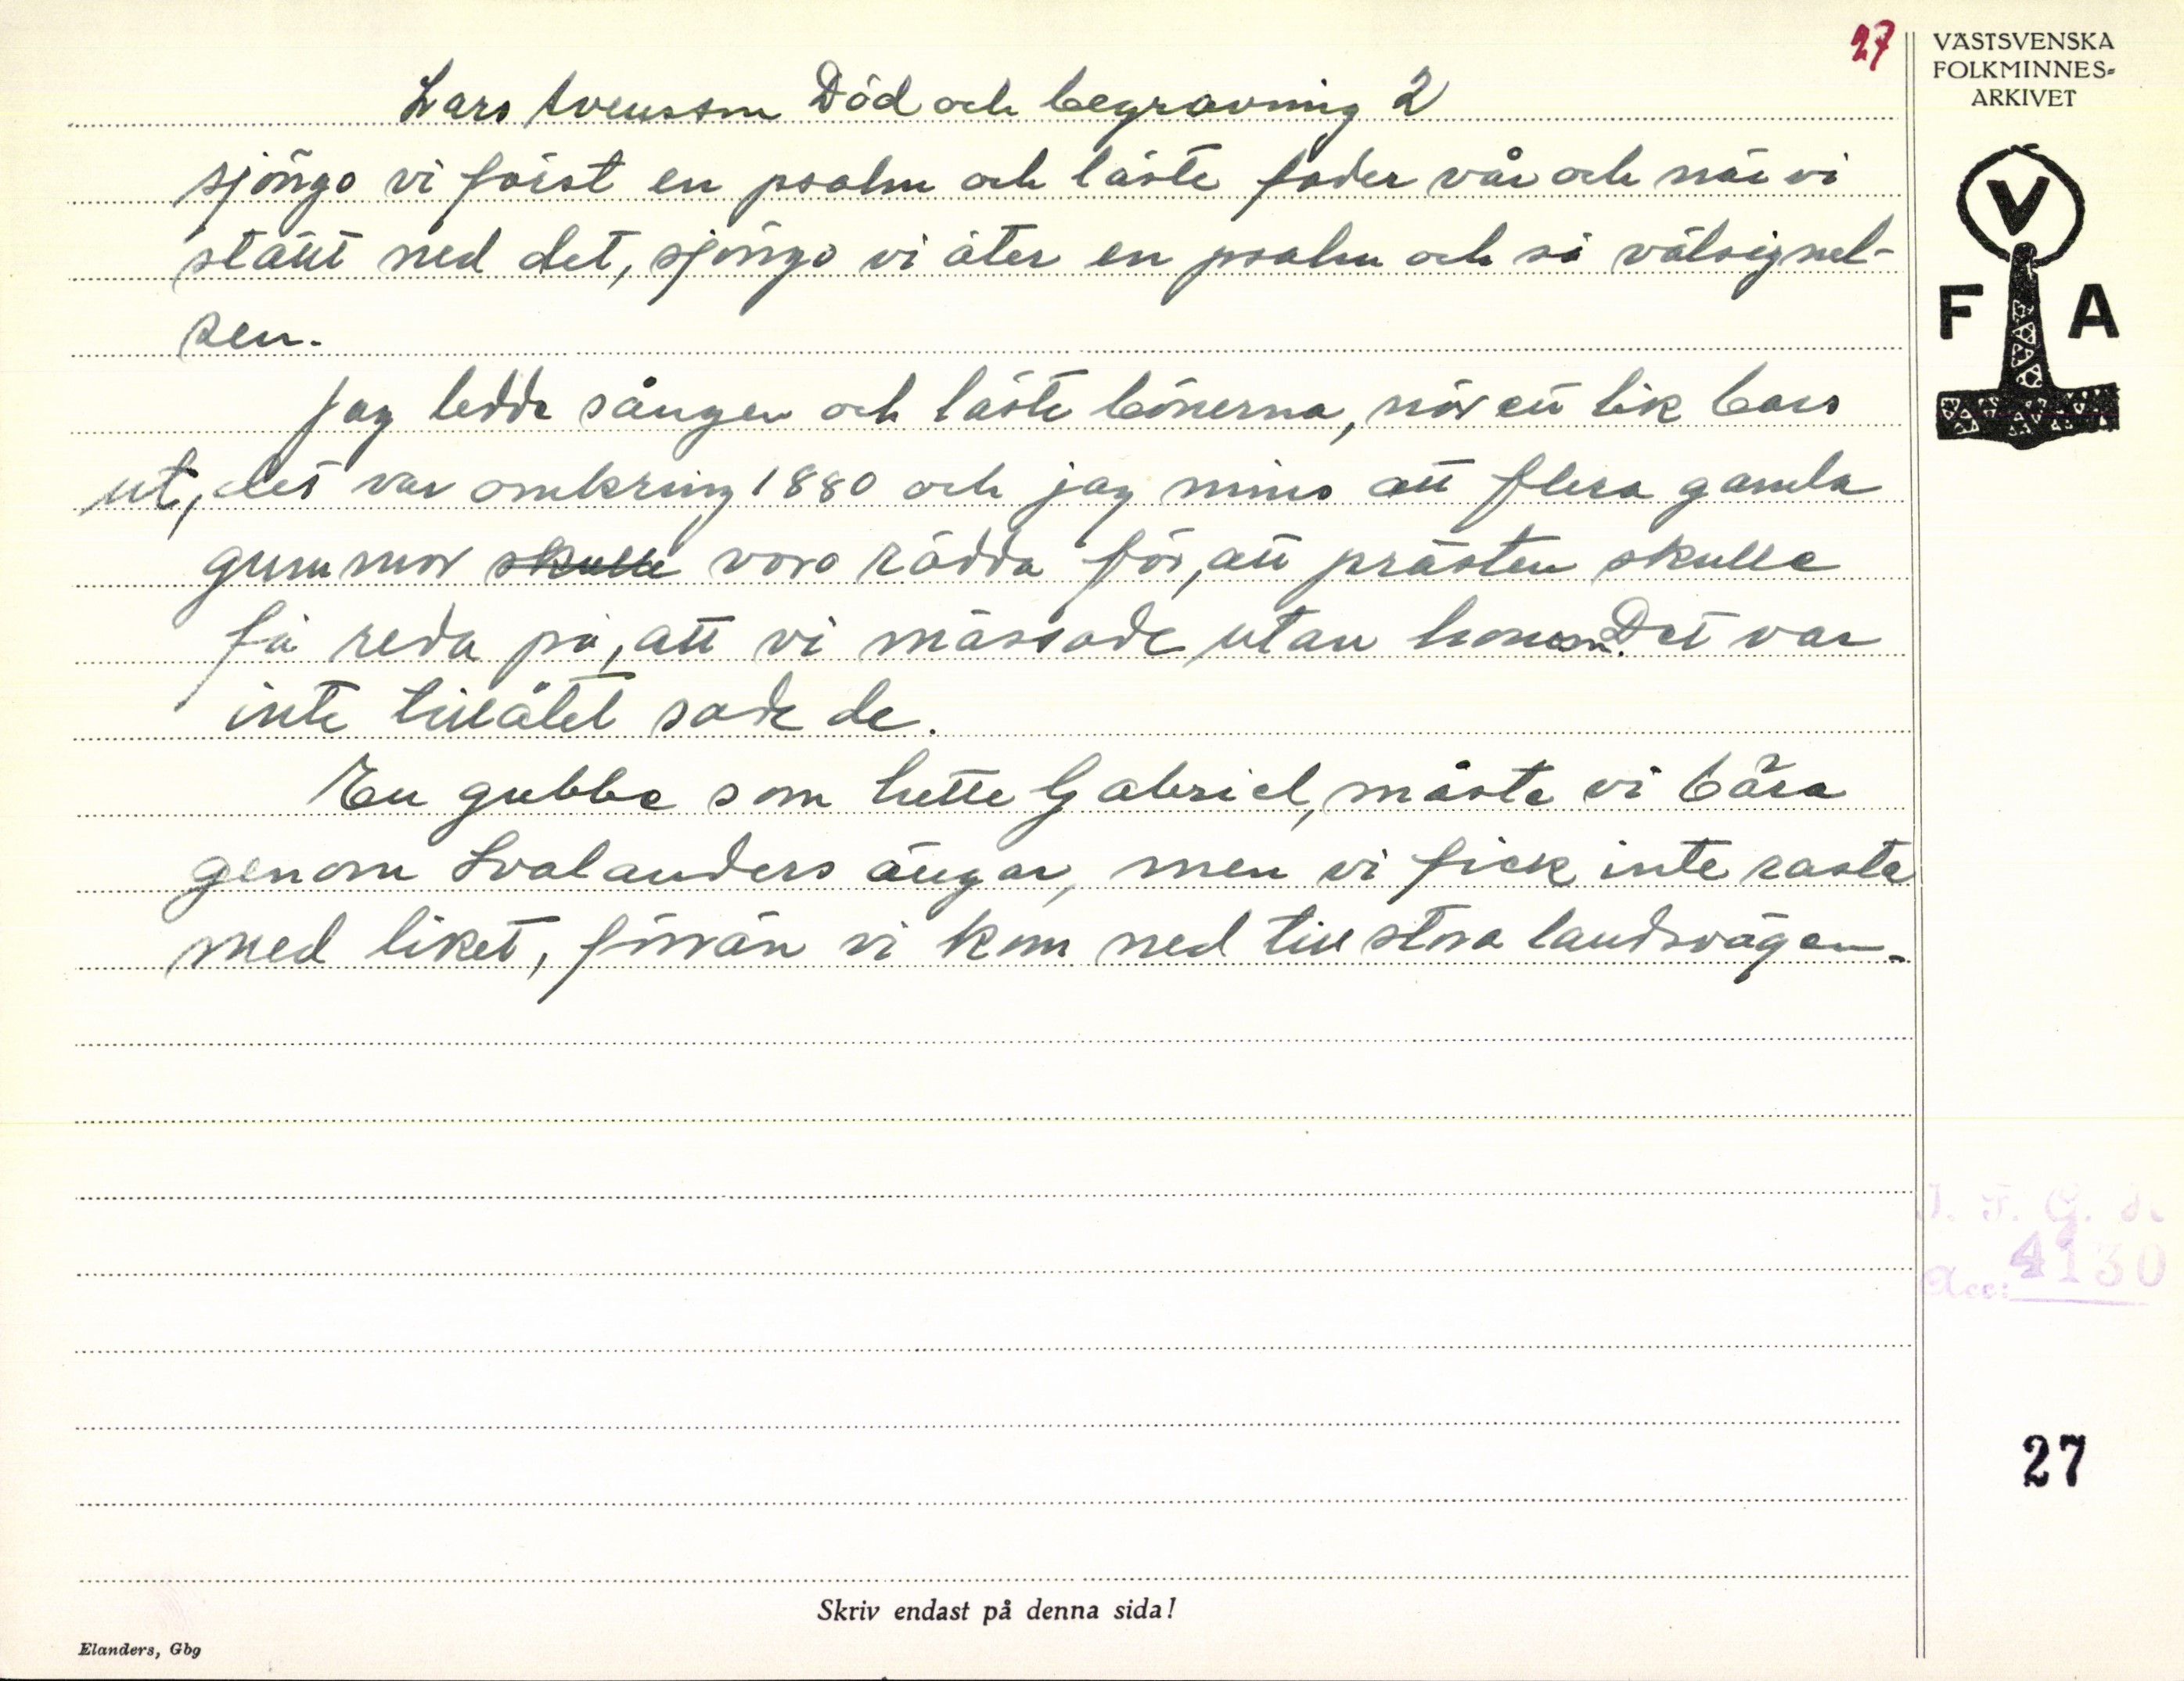 27
VÄSTSVENSKA
FOLKMINNES-
ARKIVET
Lars Svensson Död och begravning 2
sjöngo vi först en psalm och läste fader vår och när vi
ställt ned det, sjöngo vi åter en psalm och så välsignel-
sen.
Jag ledde sången och läste bönerna, när ett lik bars
ut, det var omkring 1880 och jag minns att flera gamla
gummor skulle voro rädda för, att prästen skulle
få reda på, att vi mässade utan honom. Det var
inte tillåtet sade de.
En gubbe som hette Gabriel, måste vi bära
genom Svalanders ängar, men vi fick inte rasta
med liket, förrän vi kom ned till stora landsvägen.
V
F A
I. F. G. H.
Acc: 4130
27
Skriv endast på denna sida!
Elanders, Gbg